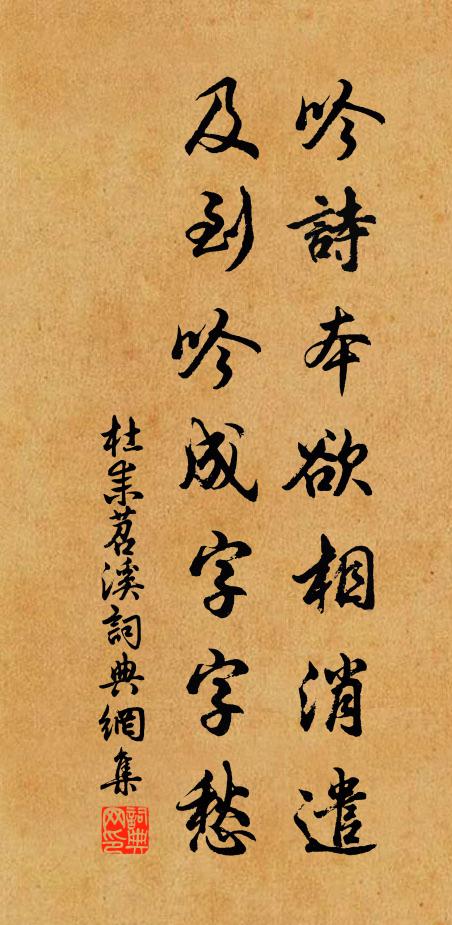 吟詩本欲相消遣
及到吟成字字愁
杜耒苕溪詞典網集
詞典網印